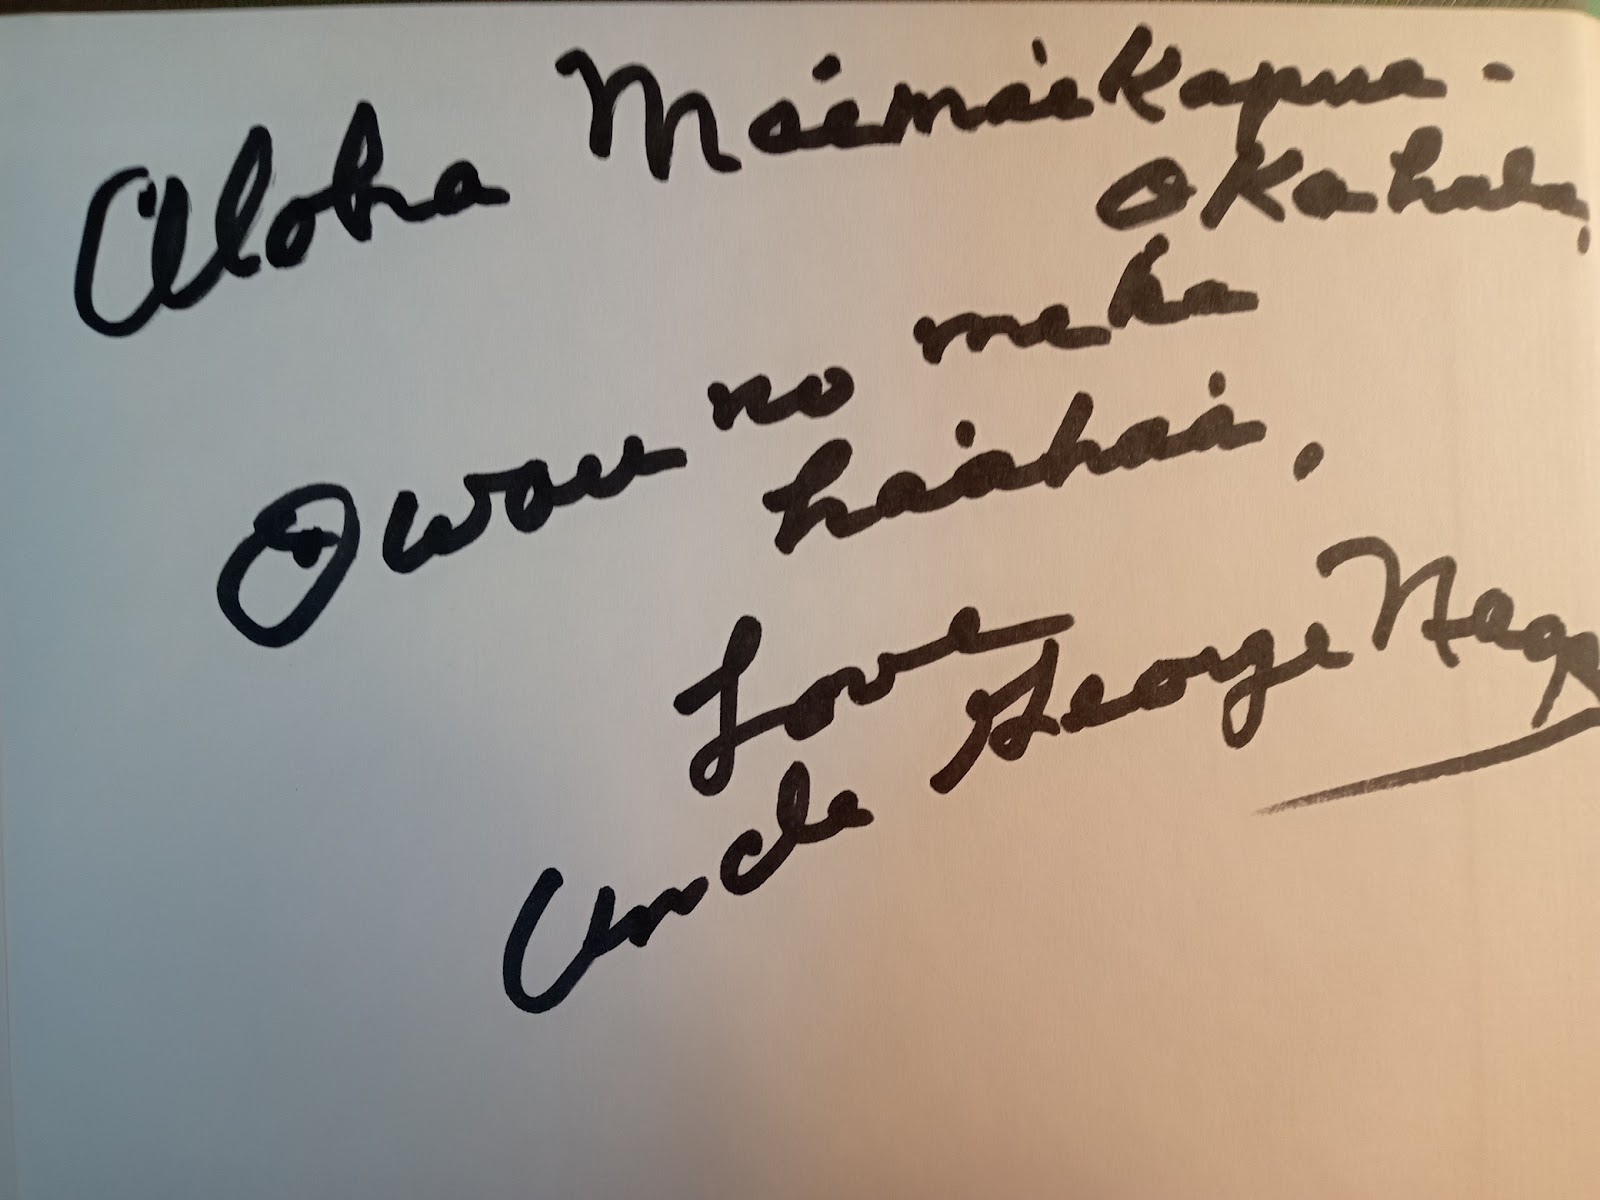 Aloha Maemaekapua-
okahala,
Owau no me ka
haahaa,
Love
Uncle George Naope